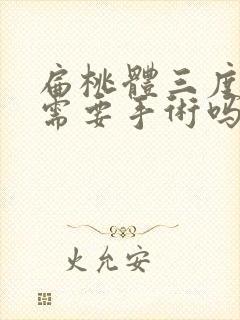 扁桃體三度
需要手術嗎
火允安